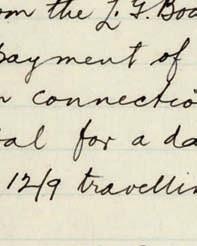 om the L. G. Boa
payment of
n connectio
tal for a da
12/9 travellin